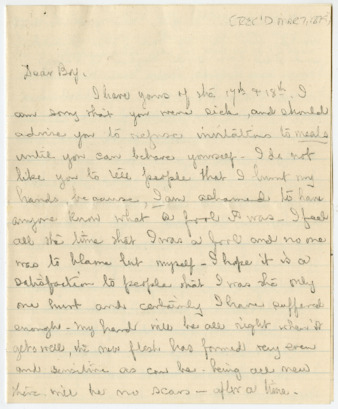 Dear Boy.
I have yours of the 17th & 18th. I
am sorry that you were sick, and should
advise you to refuse invitations to meals
until you can behave yourself. I do not
like you to tell people that I burnt my
hands, because, I am ashamed to have
anyone know what a fool I was. I feel
all the time that I was a fool and no one
was to blame but myself. I hope it is a
satisfaction to people that I was the only
one hurt and certainly I have suffered
enough. My hand will be all right when it
gets well, the new flesh has formed very even
and sensitive as can be. being all new
there will be no scars — after a time.